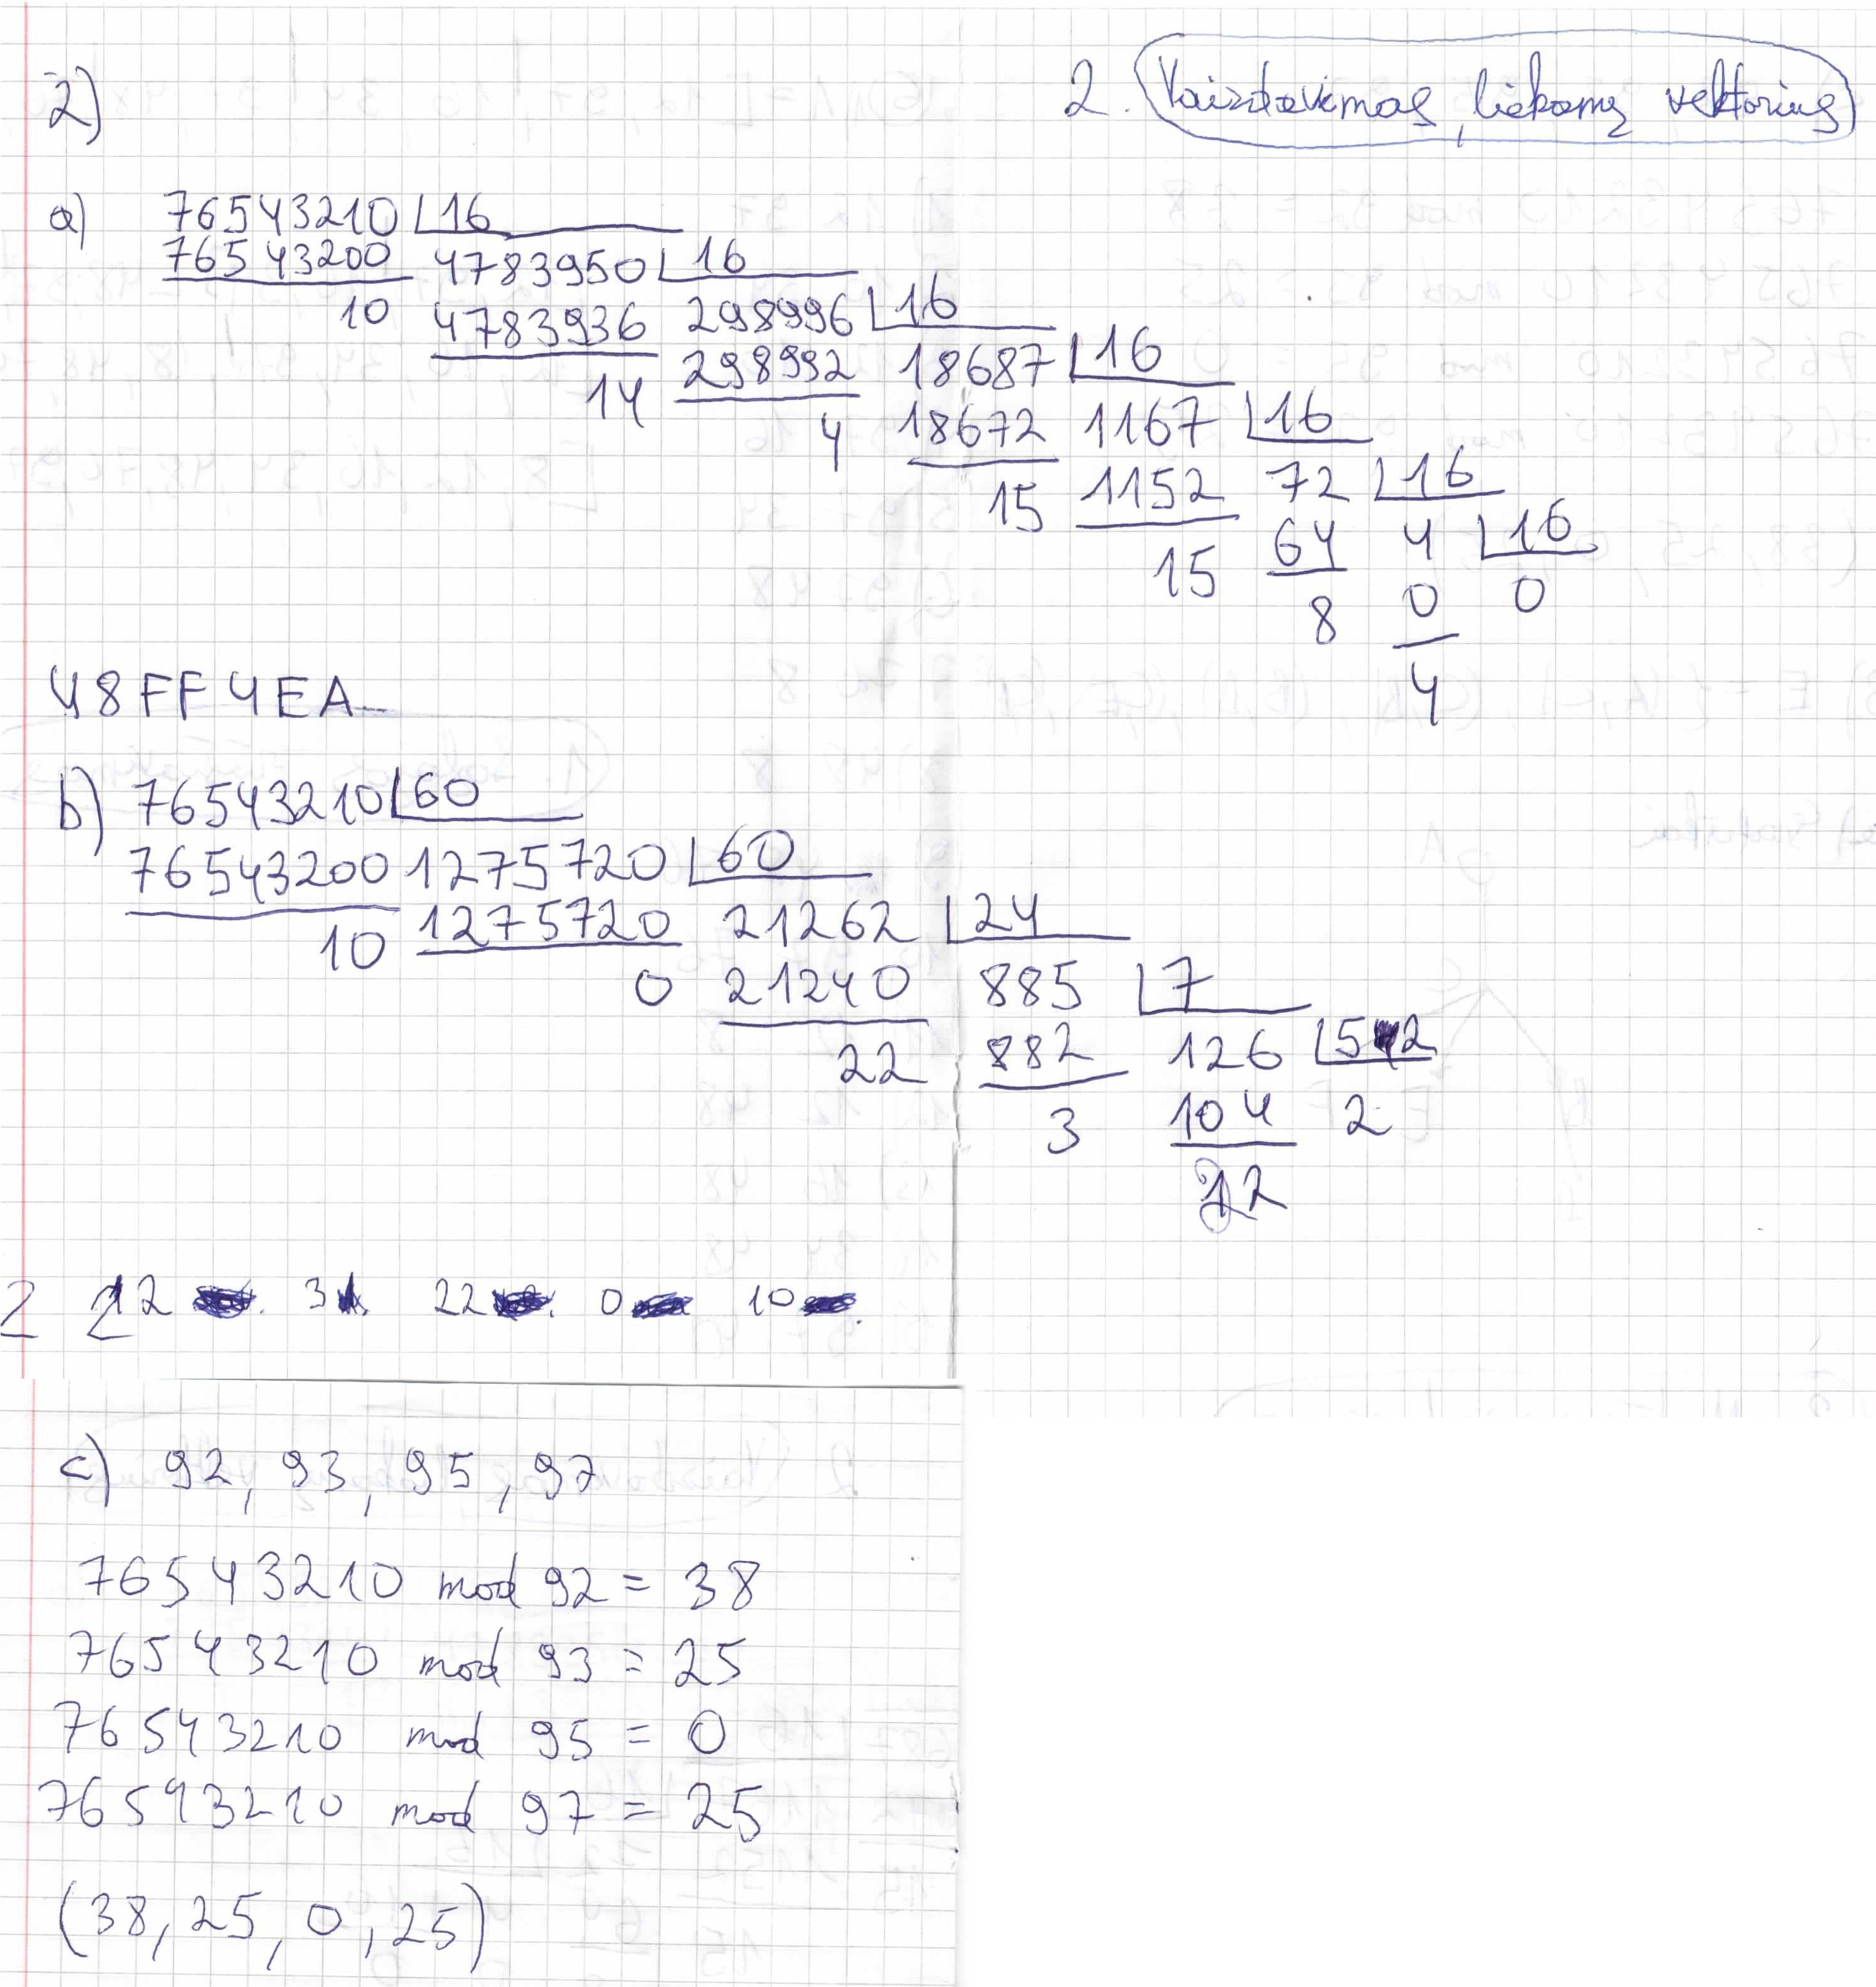 2)
2. Vaizdavimas, liekanų vektorius
a) 76543210 16
76543200 4783950 16
10 4783936 298996 16
14 298992 18687 16
4 18672 1167 16
15 1152 72 16
15 64 4 16
8 0 0
4
48FF4EA
b) 76543210 60
76543200 1275720 60
10 1275720 21262 24
0 21240 885 7
22 882 126 52
3 104 2
22
2 22 3 22 0 10
c) 92, 93, 95, 97
76543210 mod 92 = 38
76543210 mod 93 = 25
76543210 mod 95 = 0
76543210 mod 97 = 25
(38, 25, 0, 25)